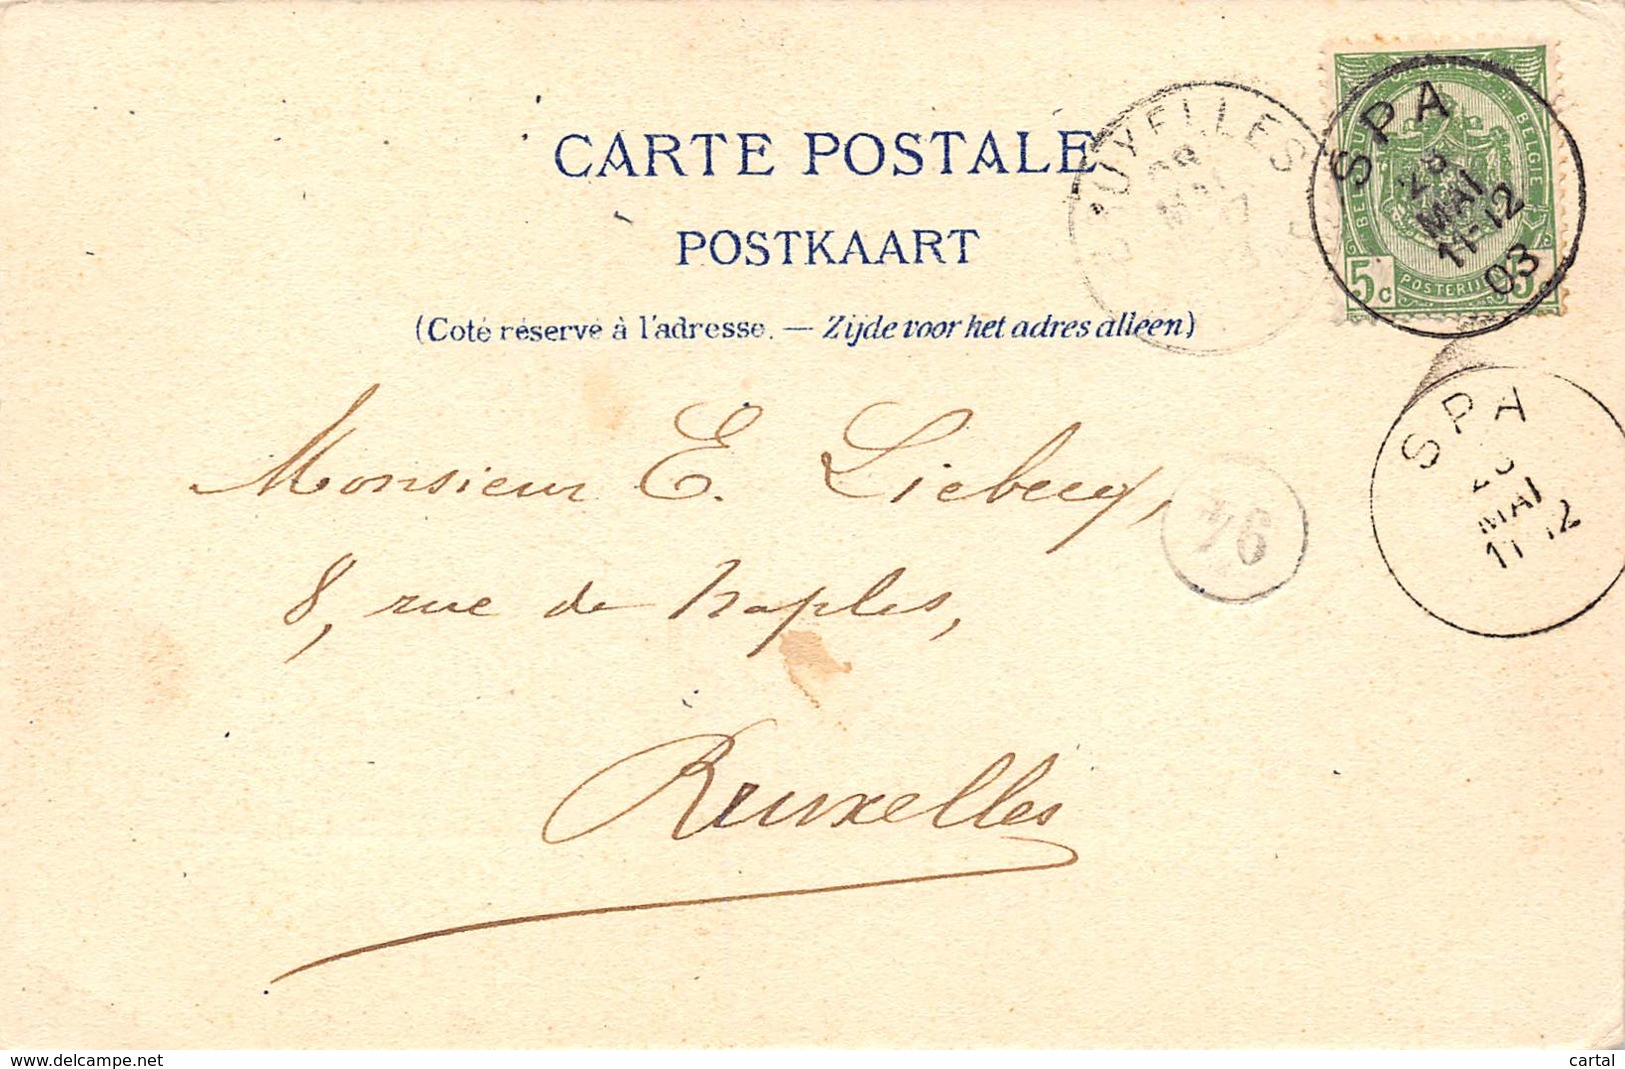 CARTE POSTALE
POSTKAART
(Coté réservé à l'adresse. — Zijde voor het adres alleen)
BRUXELLES
MAI
SPA
28
MAI
11-12
03
BELGIE
5c
POSTERIJEN
SPA
MAI
11-12
Monsieur E. Liebecq,
8, rue de Naples,
Bruxelles
www.delcampe.net
cartal